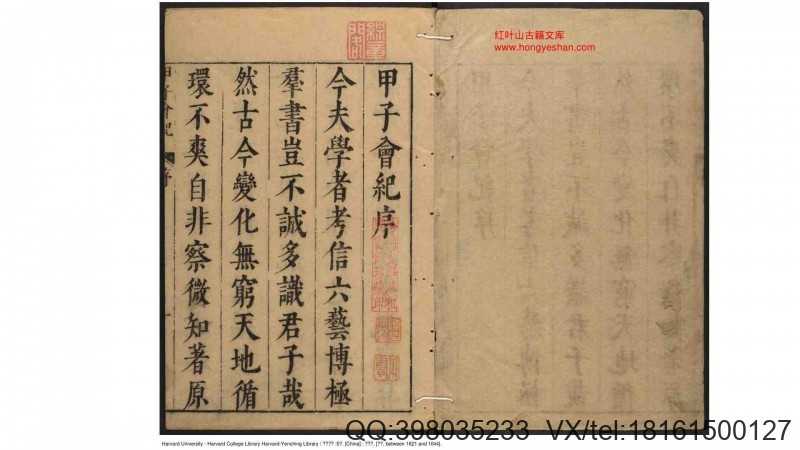 红叶山古籍文库
www.hongyeshan.com
甲子會紀序
今夫學者考信六藝博極
羣書豈不誠多識君子哉
然古今變化無窮天地循
環不爽自非察微知著原
甲子會紀
序
一
QQ:398035233 VX/tel:18161500127
Harvard University - Harvard College Library Harvard-Yenching Library / ????